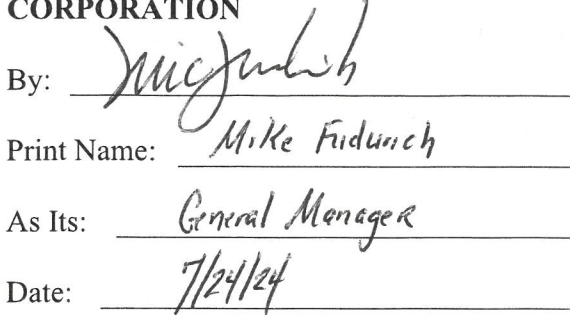 CORPORATION
By:
Print Name: Mike Fidurich
As Its: General Manager
Date: 7/24/24